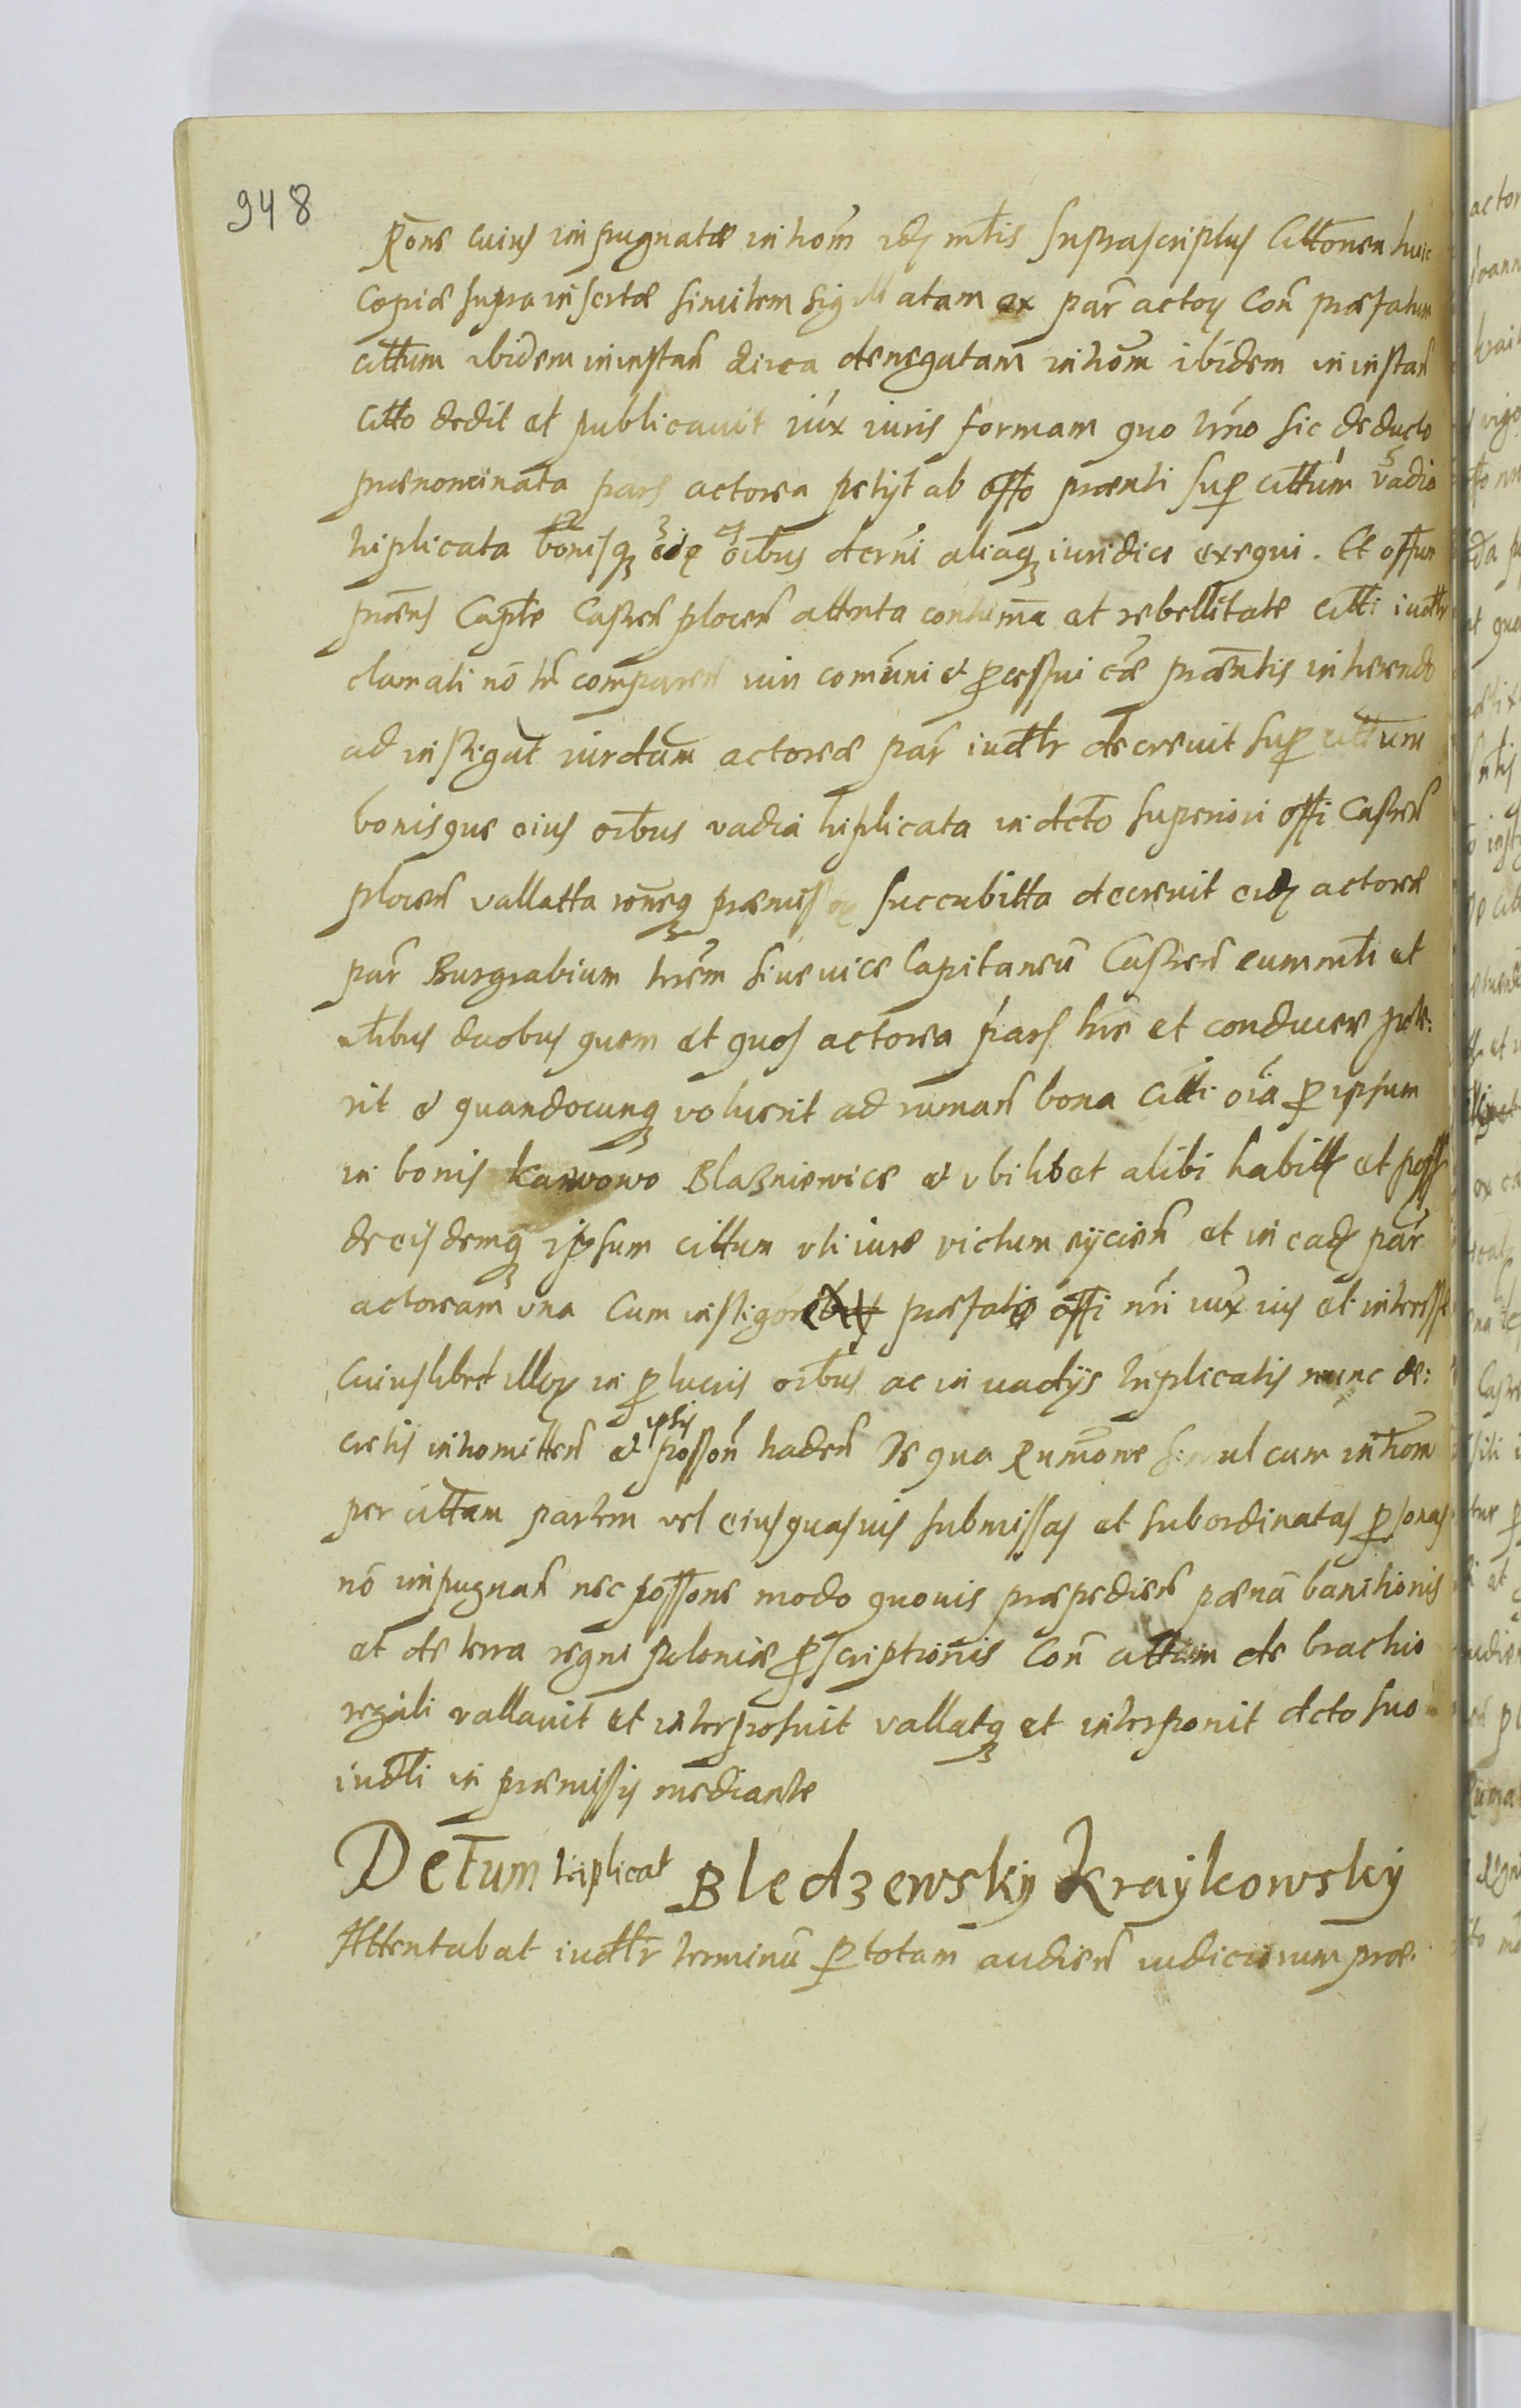 948
Rõne cuius impugnatæ inthom̃ idẽ mtis̃ suprascriptus Citt̃onem huic
Copiæ supra insertæ similem sigillatam ex par̃ actor̃ Coñ præfatum
citt̃um ibidem in instañ circa denegatam inthom̃ ibidem in instañ
citt̃o dedit et publicauit iux̃ iuris formam quo tr̃no sic deducto
prænominata pars actorea petijt ab off̃o præñti sup̃ citt̃um vadia
triplicata bonisq̃ eiq̃ oĩbus decr̃ni aliaq̃ iuridice exequi. Et off̃um
præñs Cap̃te Castreñploceñ attenta contum̃a et rebellitate citt̃i iud̃tr
clamati nõ tñ compareñ iuri com̃uni et p̃cessui cãe præñtis inherendo
ad instigat̃ iurd̃tam actoreæ par̃ iud̃tr decreuit sup̃ citt̃um
bonisque eius oĩbus vadia triplicata in dcto superiori off̃i Castreñ
ploceñ vallatta rõneq̃ præmissor̃ succubitta decreuit eidẽ actoreæ
par̃ Burgrabium trr̃em siue vice Capitaneũ Castreñ cum mt̃i et
nt̃ibus duobus quem et quos actorea pars hr̃e et conducere pote:
rit et quandocunq̃ voluerit ad rumañ bona citt̃i oĩa p̃ ipsum
in bonis karwowo Blazniewice et vbilibet alibi habitt̃ et poss̃
de eisdemq̃ ipsum citt̃um vti iure victum eycieñ et in eadẽ par̃
actoream vna Cum instigõre præfato off̃i nr̃i iux̃ ius et interesse
Cuiuslibet illor̃ in p̃lucris oĩbus ac in vadijs triplicatis nunc de:
cretis inthomitteñ et ipsis possoñ tradeñ De qua Rumõne simul cum inthom̃
per citt̃am partem vel eius quasuis submissas et subordinatas p̃sonas
nõ impugnañ nec possõne modo quouis præpedieñ pænã banitionis
et de terra regni poloniæ p̃scriptionis Coñ citt̃um de brachio
regali vallauit et interposuit vallatq̃ et interponit dcto suo
iud̃li in præmissis mediante
Dct̃um triplicat Bledzewsky Kraykowsky
Attentabat iud̃tr terminũ p̃ totam audieñ iudiciorum præ: